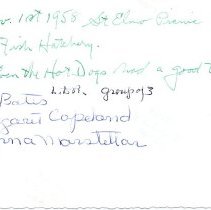 v. 1st 1958 St Elmo Picnic
Fish Hatchery.
Even the Hot Dogs had a good t
L. to R. group of 3
Bates
garet Copeland
nna Marstellar